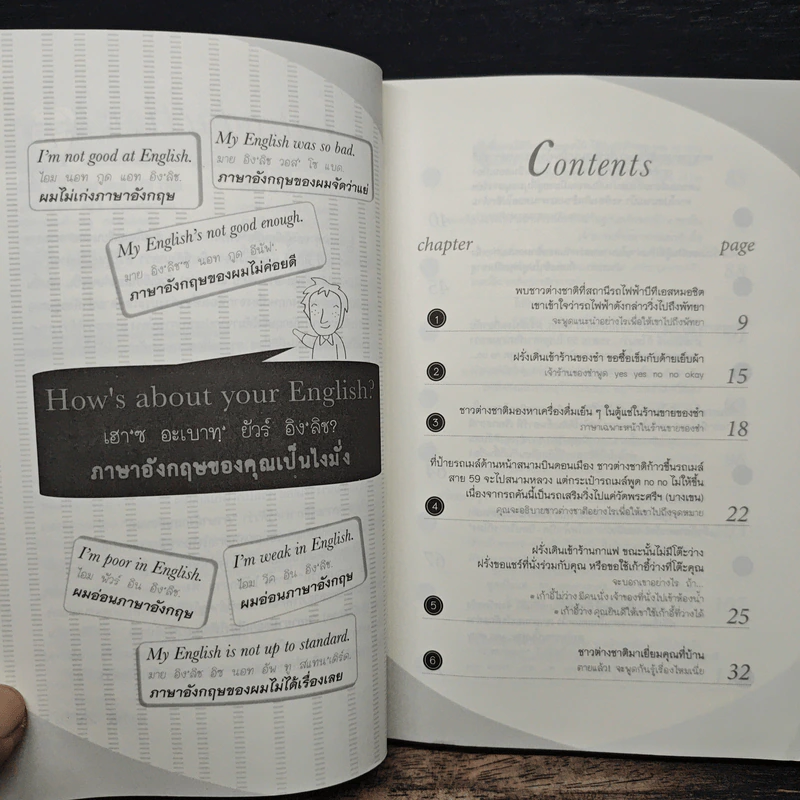 I'm not good at English.
ไอม นอท กูด แอท อิง'ลิช.
ผมไม่เก่งภาษาอังกฤษ
My English was so bad.
มาย อิง'ลิช วอส' โซ แบด.
ภาษาอังกฤษของผมจัดว่าแย่
My English's not good enough.
มาย อิง'ลิช'ซ นอท กูด อินัฟ'.
ภาษาอังกฤษของผมไม่ค่อยดี
How's about your English?
เฮา'ซ อะเบาทฺ' ยัวร์ อิง'ลิช?
ภาษาอังกฤษของคุณเป็นไงมั่ง
I'm poor in English.
ไอม พัวร์ อิน อิง'ลิช.
ผมอ่อนภาษาอังกฤษ
I'm weak in English.
ไอม วีค อิน อิง'ลิช.
ผมอ่อนภาษาอังกฤษ
My English is not up to standard.
มาย อิง'ลิช อิซ นอท อัพ ทู สแทนาเดิร์ด.
ภาษาอังกฤษของผมไม่ได้เรื่องเลย
Contents
chapter page
พบชาวต่างชาติที่สถานีรถไฟฟ้าบีทีเอสหมอชิต
เขาเข้าใจว่ารถไฟฟ้าดังกล่าววิ่งไปถึงพัทยา
1 จะพูดแนะนำอย่างไรเพื่อให้เขาไปถึงพัทยา 9
ฝรั่งเดินเข้าร้านของชำ ขอซื้อเข็มกับด้ายเย็บผ้า
2 เจ้าร้านของชำพูด yes yes no no okay 15
ชาวต่างชาติมองหาเครื่องดื่มเย็น ๆ ในตู้แช่ในร้านขายของชำ
3 ภาษาเฉพาะหน้าในร้านขายของชำ 18
ที่ป้ายรถเมล์ด้านหน้าสนามบินดอนเมือง ชาวต่างชาติก้าวขึ้นรถเมล์
สาย 59 จะไปสนามหลวง แต่กระเป๋ารถเมล์พูด no no ไม่ให้ขึ้น
เนื่องจากรถคันนี้เป็นรถเสริมวิ่งไปแค่วัดพระศรีฯ (บางเขน)
4 คุณจะอธิบายชาวต่างชาติอย่างไรเพื่อให้เขาไปถึงจุดหมาย 22
ฝรั่งเดินเข้าร้านกาแฟ ขณะนั้นไม่มีโต๊ะว่าง
ฝรั่งขอแชร์ที่นั่งร่วมกับคุณ หรือขอใช้เก้าอี้ว่างที่โต๊ะคุณ
จะบอกเขาอย่างไร ถ้า...
• เก้าอี้ไม่ว่าง มีคนนั่ง เจ้าของที่นั่งไปเข้าห้องน้ำ
5 • เก้าอี้ว่าง คุณยินดีให้เขาใช้เก้าอี้ที่ว่างได้ 25
ชาวต่างชาติมาเยี่ยมคุณที่บ้าน
6 ตายแล้ว! จะพูดกันรู้เรื่องไหมเนี่ย 32